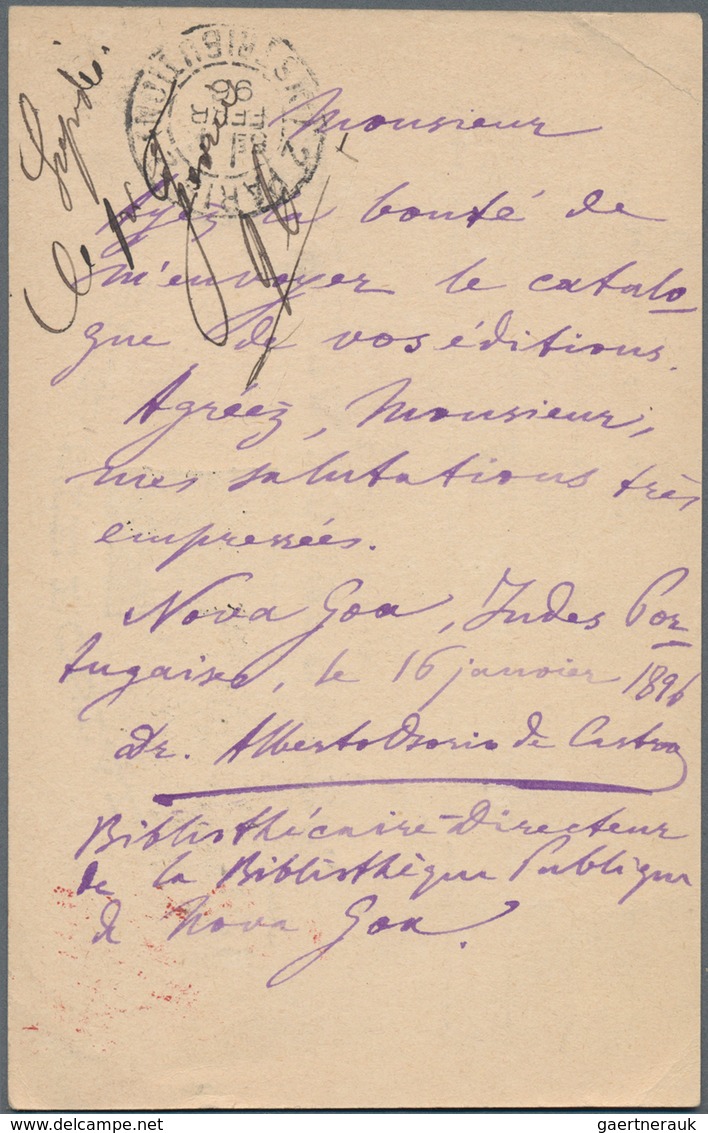 Monsieur
Ayez la bonté de
m'envoyer le catalo-
gue de vos éditions.
Agréez, Monsieur,
mes salutations très
empressées.
Nova Goa, Indes Por-
tugaises, le 16 janvier 1896
Dr. Alberto Osorio de Castro
Bibliothécaire-Directeur
de la Bibliothèque Publique
de Nova Goa.
DISTRIBUTION
PARIS
FEVR
96
le 1er
gaertnerauk